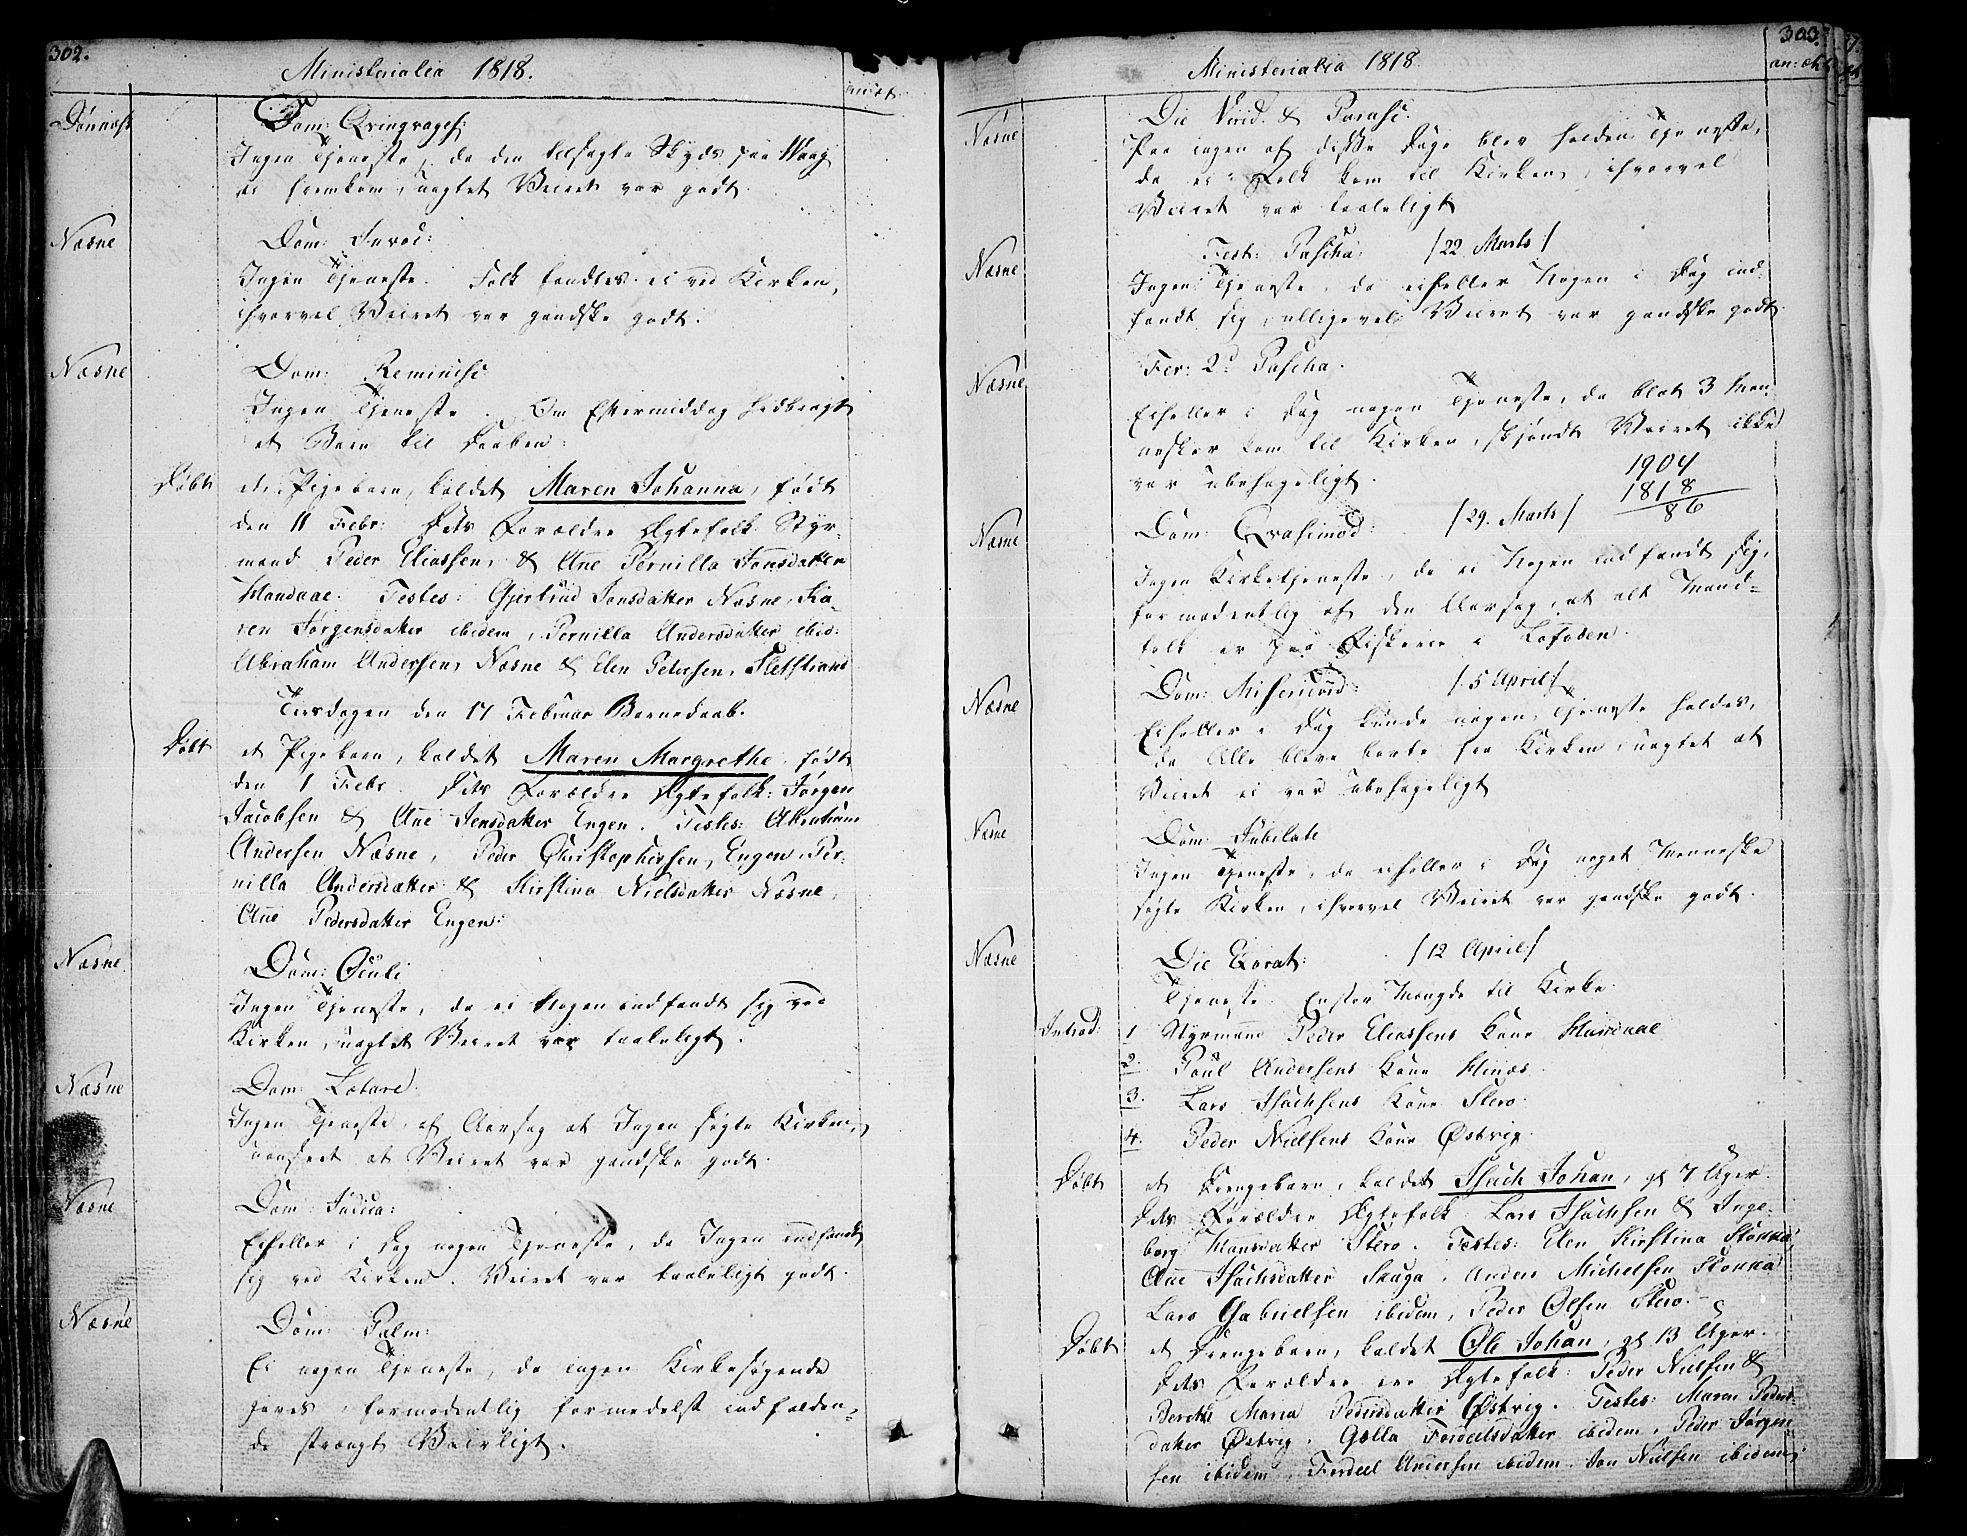 302.
Ministerialia 1818.
Dønnæs
Dom: Qvinqvages:
Ingen Tjeneste, da den tilsagte Skyds paa Waag
ei fremkom, uagtet Veiret var godt.
Næsne
Dom: Invoc:
Ingen Tjeneste. Folk fandtes ei ved Kirken,
ihvorvel Veiret var gandske godt.
Næsne
Dom: Reminisc:
Ingen Tjeneste. Om Eftermiddag hidbragt
et Barn til Daaben:
Døbt
et Pigebarn, kaldet Maren Johanna, født
den 11 Febr: Dets Forældre Ægtefolk Styr-
mand Peder Eliassen, & Ane Pernilla Jonsdatter
Handaae. Testes: Gjertrud Jonsdatter Næsne, Ka-
ren Jørgensdatter ibidem, Pernilla Andersdatter ibid:
Abraham Andersen, Næsne & Elen Petersen, Sletstrand
Tirsdagen den 17 Februar Barnedaab.
Døbt
et Pigebarn, kaldet Maren Margrethe, født
den 1 Febr. Dets Forældre Ægtefolk: Jørgen
Jacobsen & Ane Jensdatter Engen. Testes: Abraham
Andersen Næsne, Peder Christophersen, Engen, Per-
nilla Andersdatter & Kirstina Nielsdatter Næsne,
Ane Pedersdatter Engen:
Næsne
Dom: Oculi
Ingen Tjeneste, da ei Nogen indfandt sig ved
Kirken, uagtet Veiret var taaleligt.
Næsne
Dom: Lætare.
Ingen Tjeneste, af Aarsag at Ingen søgte Kirken,
uanseet at Veiret var gandske godt.
Næsne
Dom: Judica:
Eiheller i Dag nogen Tjeneste, da Ingen indfandt
sig ved Kirken. Veiret var taaleligt godt.
Næsne
Dom: Palm:
Ei nogen Tjeneste, da ingen Kirkesøgende
gaves, formodentlig formedelst indfalden-
de strængt Veirligt.
303.
Ministerialia 1818.
Næsne
Die Virid. & Parasc.
Paa ingen af disse Dage blev holden Tjeneste,
da ei Folk kom til Kirken, ihvorvel
Veiret var taaleligt
Næsne
Fest: Pascha: /22 Marts/
Ingen Tjeneste, da eiheller Nogen i Dag ind-
fandt sig, alligevel Veiret var gandske godt.
Næsne
Fer: 2d Pascha.
Eiheller i Dag nogen Tjeneste, da blot 3 Men-
nesker kom til Kirken, skjøndt Veiret ikke
var ubehageligt.
1904
1818
86
Næsne
Dom: Qvasimod: /29. Marts/
Ingen Kirketjeneste, da ei Nogen indfandt sig,
formodentlig af den Aarsag, at alt Mand-
folk er paa Fiskerie i Lofoden.
Næsne
Dom: Misericord: /5 April/
Eiheller i Dag kunde nogen Tjeneste holdes,
da Alle bleve borte fra Kirken, uagtet at
Veiret ei var ubehageligt
Næsne
Dom: Jubilate
Ingen Tjeneste, da eiheller i Dag noget Menneske
søgte Kirken, ihvorvel Veiret var gandske godt.
Næsne
Die Exorat: /12 April/
Tjeneste. Mængde til Kirke.
Introd:
1 Styrmand Peder Eliassens Kone Handaae
2. Poul Andersens Kone
3. Lars Isachsens Kone Stero.
4. Peder Nielsens Kone Østvig.
Døbt
et Drengebarn, kaldet Isach Johan, gl 7 Uger.
Dets Forældre Ægtefolk Lars Isachsen & Inge-
borg Hansdatter Stero. Testes: Elen Kirstina Stokka,
Ane Isachsdatter Skaga, Anders Michelsen Stokka
Lars Gabrielsen ibidem, Peder Olsen Stero.
Døbt
et Drengebarn, kaldet Ole Johan, gl 13 Uger.
Dets Forældre ere Ægtefolk: Peder Nielsen &
Berethe Maria Pedersdatter Østvig. Testes: Maren Peders-
datter Østvig, Golla Fordeelsdatter ibidem, Peder Jørgen-
sen ibidem, Fordeel Andersen ibidem. Jon Nielsen ibidem,